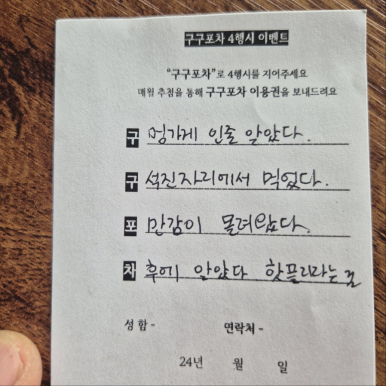 구구포차 4행시 이벤트
"구구포차"로 4행시를 지어주세요
매월 추첨을 통해 구구포차 이용권을 보내드려요
구 멍가게 인줄 알았다.
구 석진자리에서 먹었다.
포 만감이 몰려왔다.
차 후에 알았다 핫플이라는 걸
성함 - 연락처 -
24년 월 일